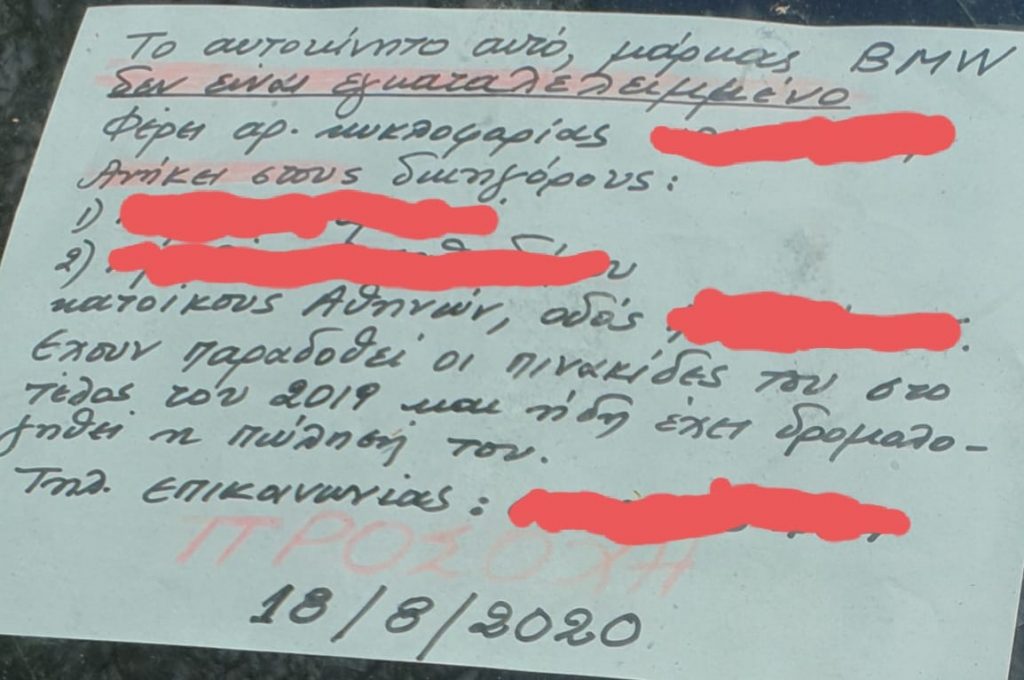 Το αυτοκίνητο αυτό, μάρκας BMW
δεν είναι εγκαταλελειμμένο
Φέρει αρ. κυκλοφορίας
Ανήκει στους δικηγόρους:
1)
2)
κατοίκους Αθηνών, οδός
Έχουν παραδοθεί οι πινακίδες του στο
τέλος του 2019 και ήδη έχει δρομολο-
γηθεί η πώλησή του.
Τηλ. επικοινωνίας:
ΠΡΟΣΟΧΗ
18/8/2020